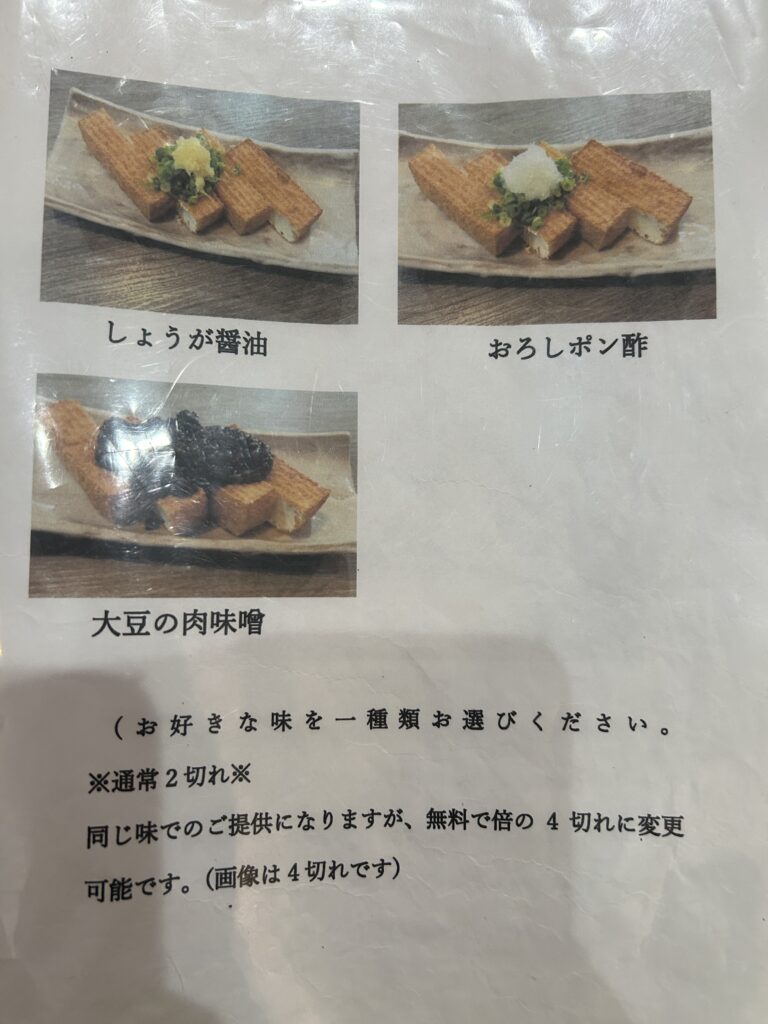 しょうが醤油
おろしポン酢
大豆の肉味噌
(お好きな味を一種類お選びください。
※通常2切れ※
同じ味でのご提供になりますが、無料で倍の 4 切れに変更
可能です。(画像は4切れです)